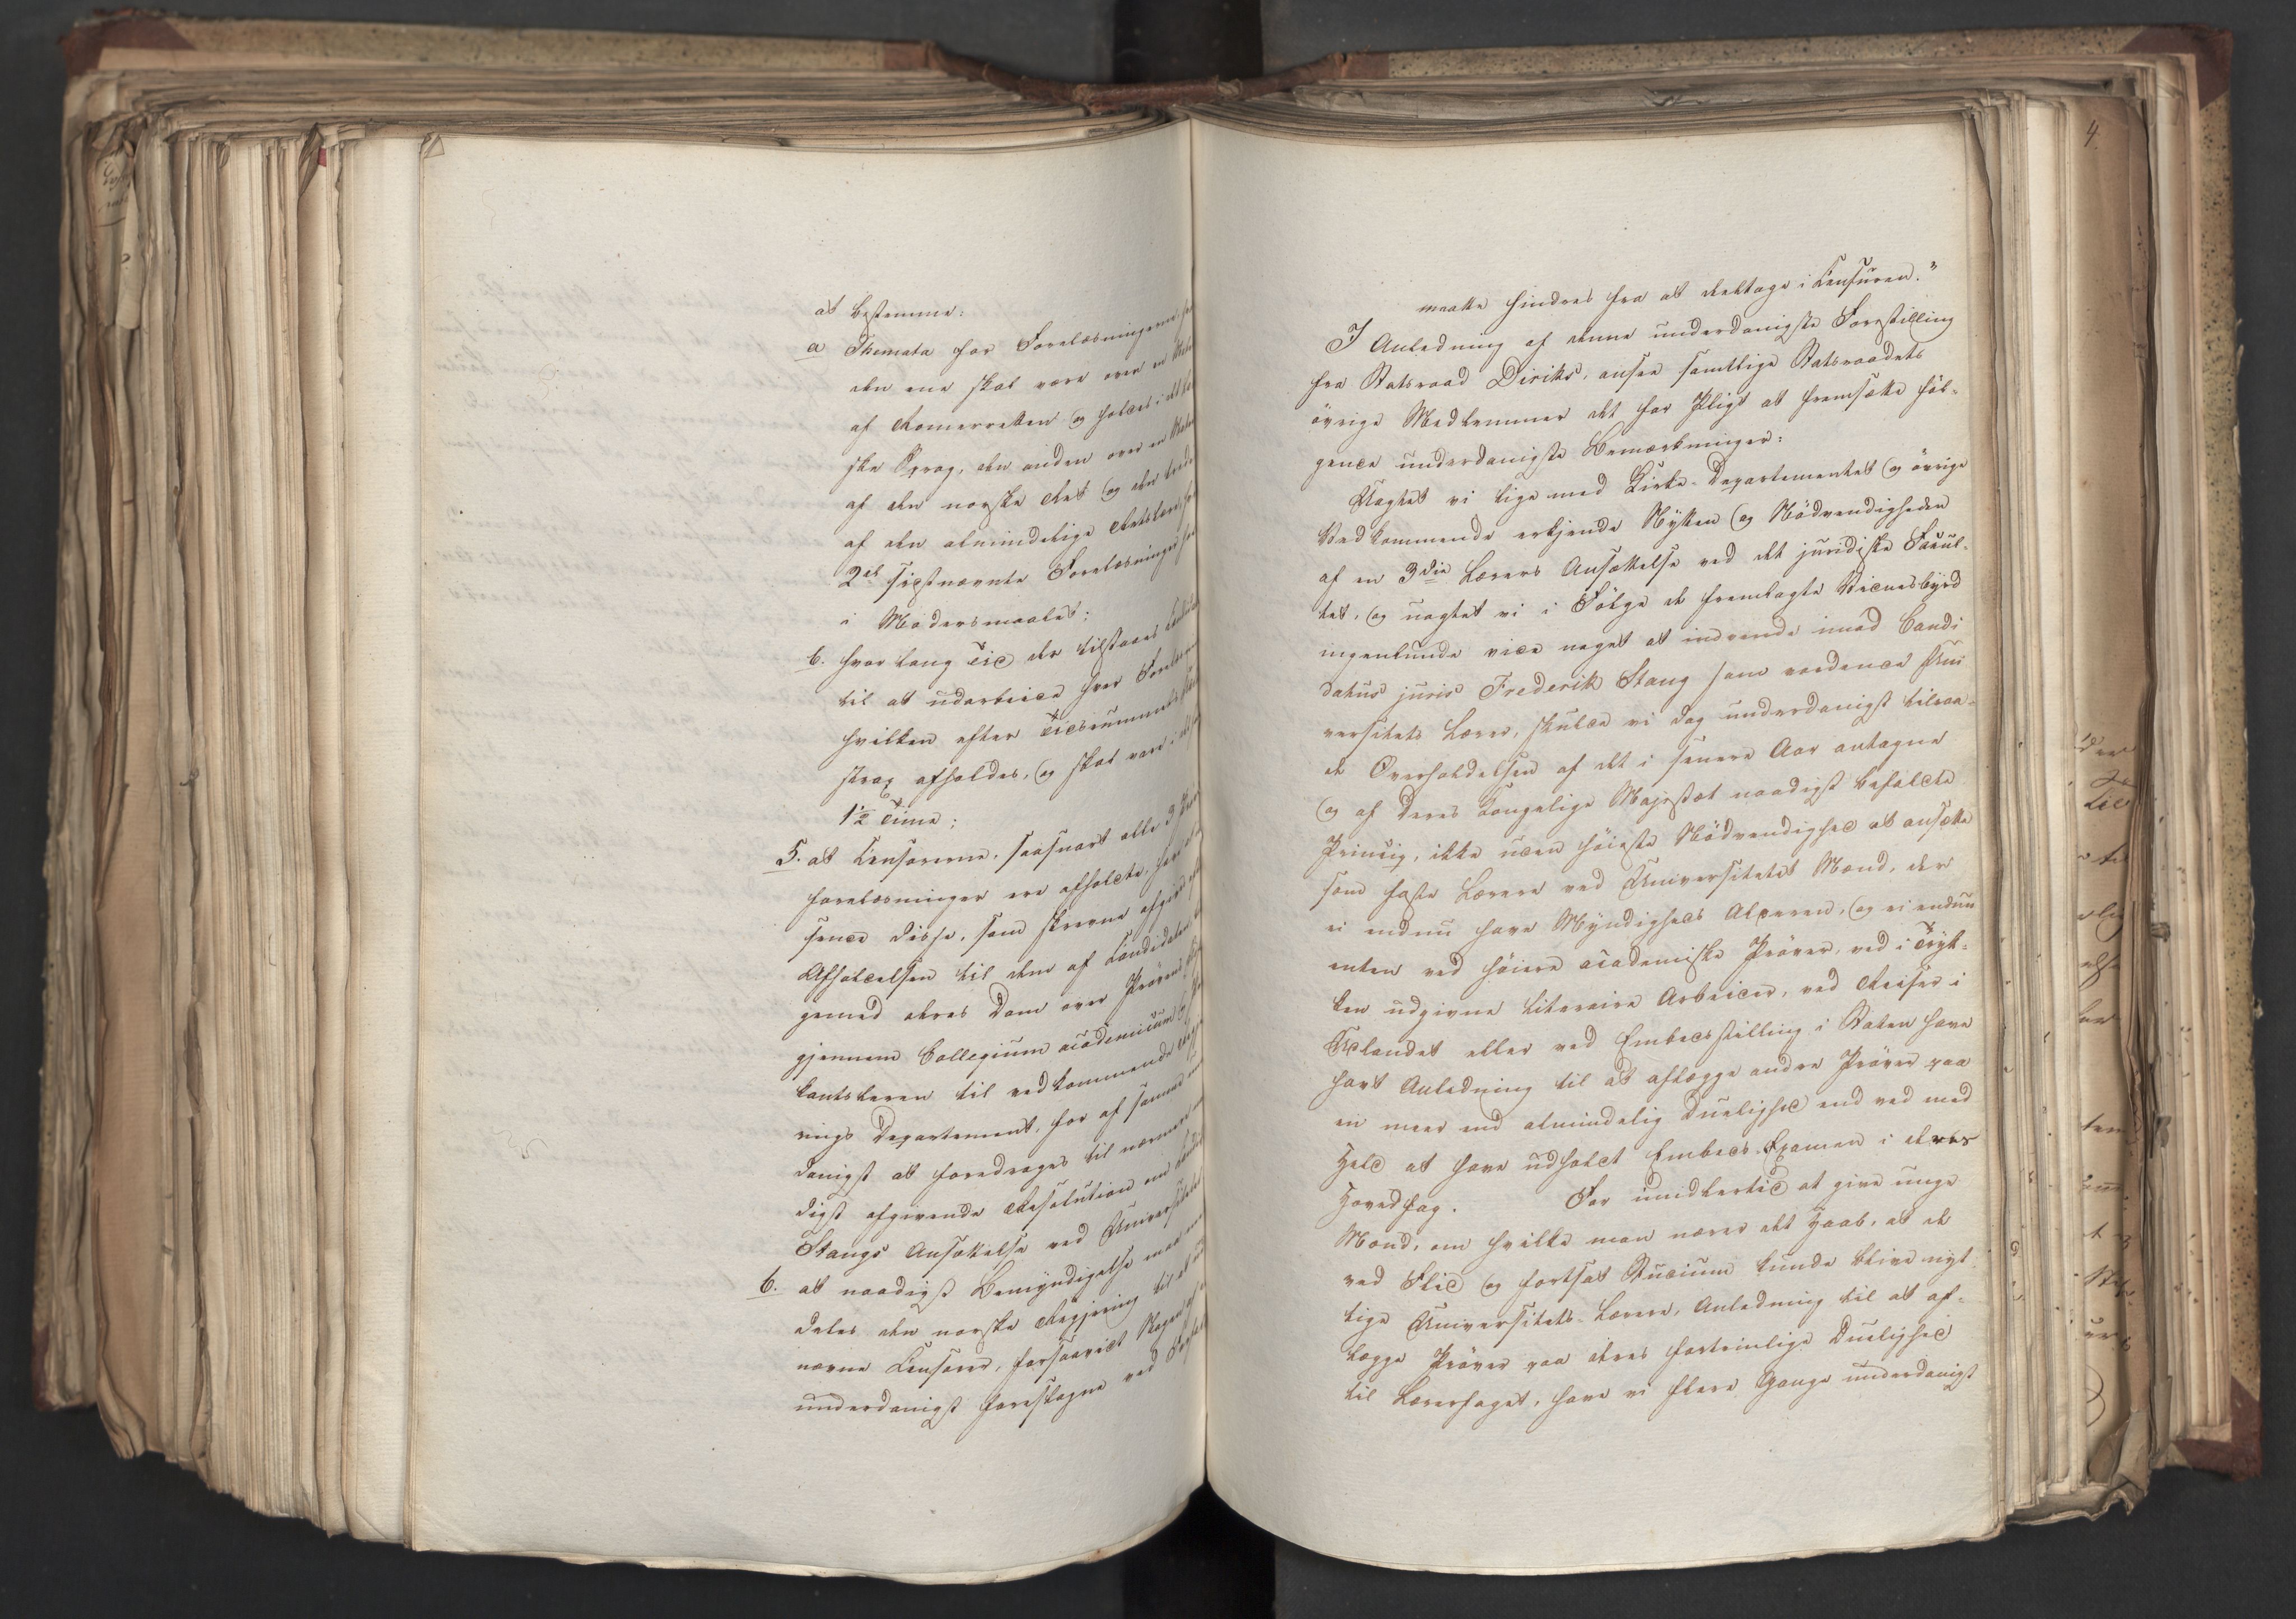 at bestemme:
a Themata for Forelæsningerne,
den ene skal være over en
af Romerretten og holdes i det
ske Sprog, den anden over en
af den norske Ret og den
af den almindelige Retslære,
2de sidstnævnte Forelæsninger
i Modersmaalet;
b. hvor lang Tid der tilstaaes
til at udarbeide hver
hvilken efter Tidsrummets
strax afholdes, og skal vare i
1½ Time;
5. at Censorerne, saasnart alle 3
forelæsninger ere afholdte, have
sende disse, som skrevne afgives
Afholdelsen til dem af Candidaten
gemed deres Dom over Prøverne
gjennem Collegium academicum
kantsleren til vedkommende
rings Departement, for af samme
danigst at foredrages til nærmere
digst afgivende Resolution om
Stangs Ansættelse ved Universitetet
6. at naadigst Bemyndigelse maa
deles den norske Regjering til at
nævne Censorer, forsaavidt Nogen af
underdanigst foreslagne ved
maatte hindres fra at deeltage i Censuren."
I Anledning af denne underdanigste Forestilling
fra Statsraad Diriks, ansee samtlige Statsraadets
övrige Medlemmer det for Pligt at fremsætte föl-
gende underdanigste Bemærkninger:
Uagtet vi lige med Kirke-Departementet og övrige
Vedkommende erkjende Nytten og Nödvendigheden
af en 3die Lærers Ansættelse ved det juridiske Facul-
tet, og uagtet vi i Fölge de fremlagte Vidnesbyrd
ingenlunde vide noget at indvende imod Candi
datus juris Frederik Stang som vordende Uni
versitets Lærer, skulde vi dog underdanigst tilraa-
de Overholdelsen af det i senere Aar antagne
og af Deres Kongelige Majestæt naadigst befalede
Princip, ikke uden höieste Nödvendighed at ansætte
som faste Lærere ved Universitetet Mænd, der
ei endnu have Myndigheds Alderen, og ei endnu
enten ved höiere academiske Pröver, ved i Tryk-
ken udgivne literaire Arbeider, ved Reiser i
Udlandet eller ved Embedsstilling i Staten have
havt Anledning til at aflægge andre Pröver paa
en meer end almindelig Duelighed end ved med
Held at have udholdt Embeds-Examen i deres
Hovedfag. For imidlertid at give unge
Mænd, om hvilke man nærer det Haab, at de
ved Flid og fortsat Studium kunde blive nyt
tige Universitets-Lærere, Anledning til at af-
lægge Pröver paa deres fortrinlige Duelighed
til Lærerfaget, have vi flere Gange underdanigst
4